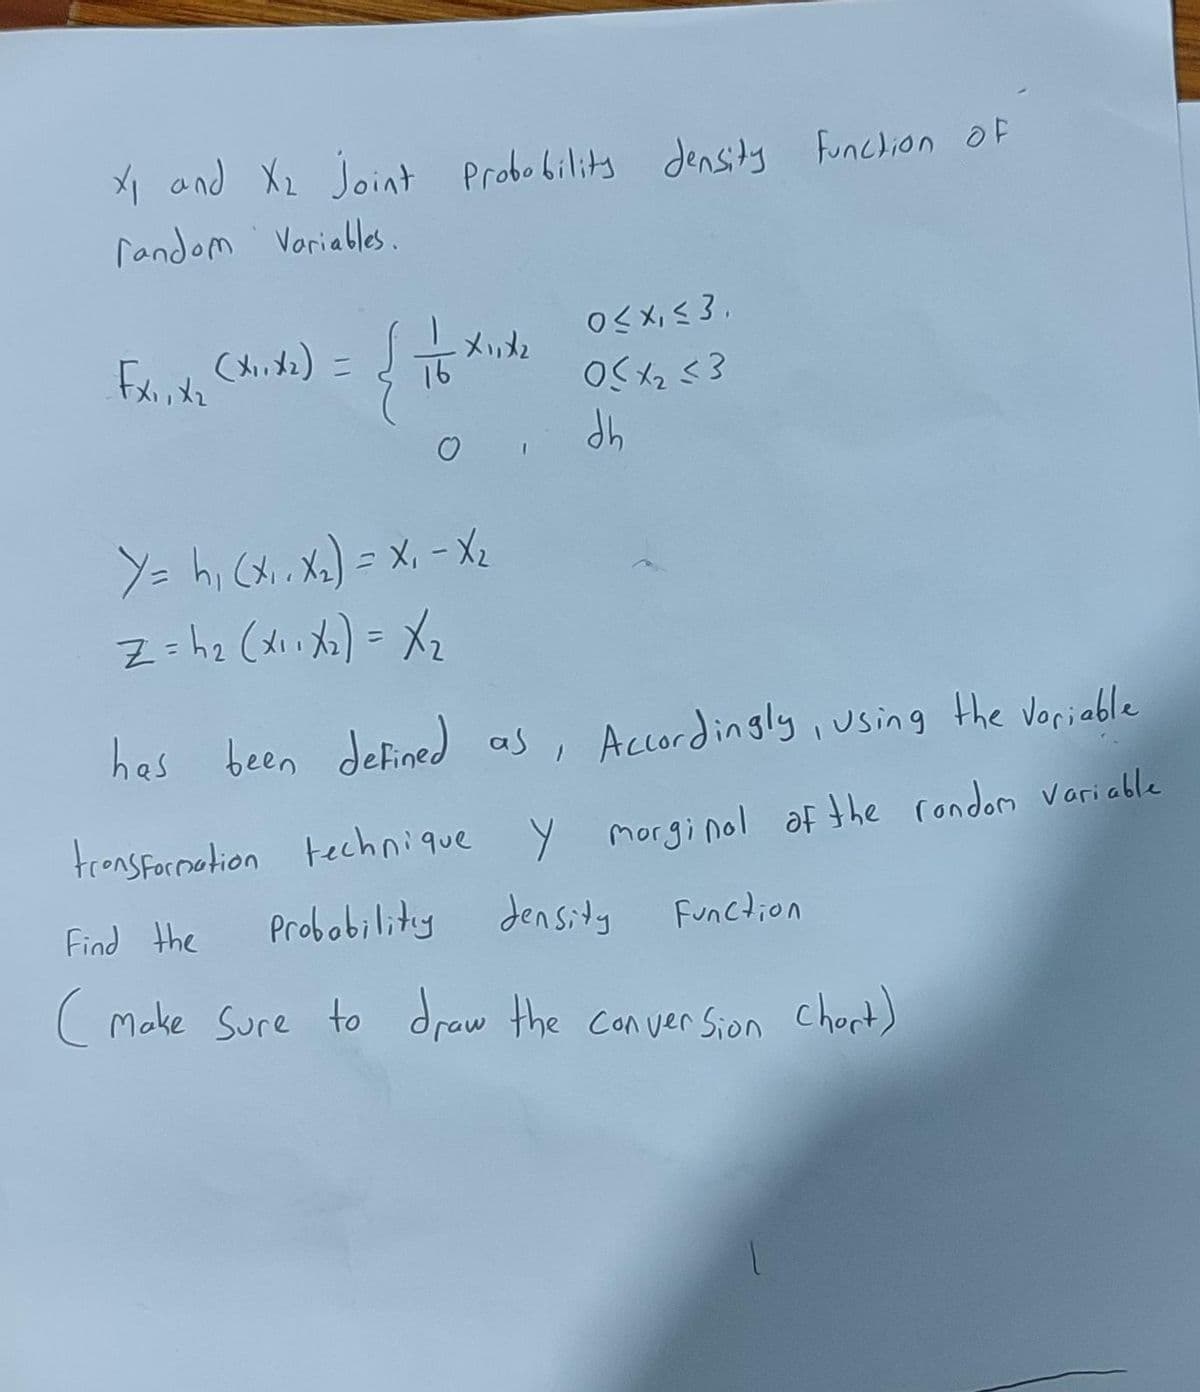 X1 and X2 Joint Probability density Function OF
random Variables.
Fx1,x2 (x1,x2) = { 1/16 x1,x2 0≤x1≤3.
0≤x2≤3
0 , dh
Y= h1 (x1,x2) = X1 - X2
Z = h2 (x1,x2) = X2
has been defined as, Accordingly, using the Variable
transformation technique Y marginal of the random variable
Find the Probability density Function
(make sure to draw the conversion chart)